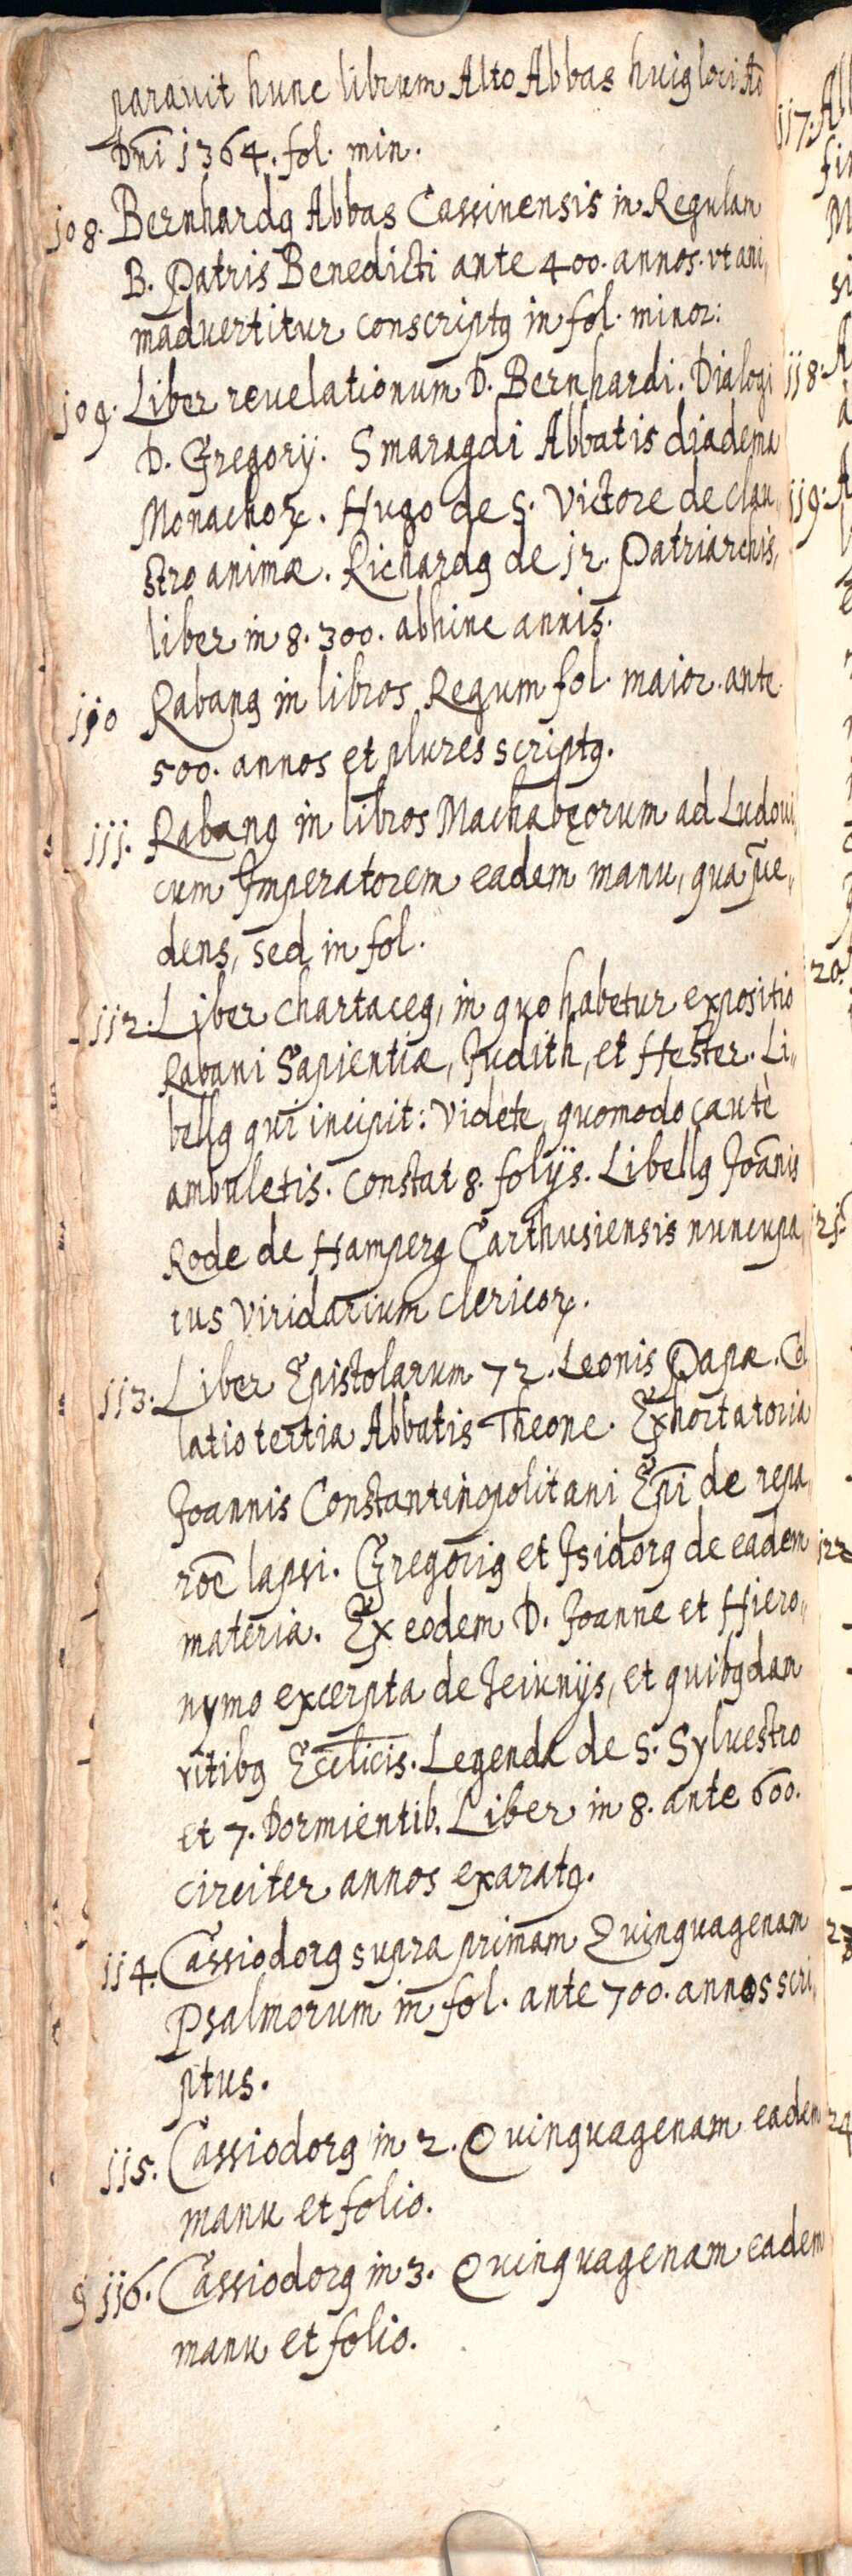 parauit hunc librum Alto Abbas huiꝰ loci Aõ
Dñi 1364. fol. min.
108. Bernhardꝰ Abbas Cassinensis in Regulam
B. Patris Benedicti ante 400. annos. vt ani,,
maduertitur conscriptꝰ in fol. minor:
109. Liber reuelationum D. Bernhardi. Dialogi
D. Gregorij. Smaragdi Abbatis diadema
Monachoꝝ. Hugo de S. Victore de clau,,
stro animæ. Richardꝰ de 12. Patriarchis,
liber in 8. 300. abhinc annis.
110 Rabanꝰ in libros Regum fol. maior. ante
500. annos et plures scriptꝰ.
111. Rabanꝰ in libros Machabęorum ad Ludoui,,
cum Imperatorem eadem manu, qua p̃ce,,
dens, sed in fol.
112. Liber chartaceꝰ, in quo habetur expositio
Rabani Sapientiæ, Judith, et Hester. Li,,
bellꝰ qui incipit: Videte quomodo cautè
ambuletis. Constat 8. folijs. Libellꝰ Joãnis
Rode de Hamperg Carthusiensis nuncupa,,
tus Viridarium clericoꝝ.
113. Liber Epistolarum 72. Leonis Papæ. Col
latio tertia Abbatis Theone. Exhortatoria
Joannis Constantinopolitani Ep̃i de repa,,
rõe lapsi. Gregoriꝰ et Isidorꝰ de eadem
materia. Ex eodem D. Joanne et Hiero,,
nymo excerpta de Jeiunijs, et quibꝰdam
ritibꝰ Eccl̃icis. Legenda de S. Syluestro
et 7. Dormientib. Liber in 8. ante 600.
circiter annos exaratꝰ.
114. Cassiodorꝰ supra primam Quinquagenam
Psalmorum in fol. ante 700. annos scri,,
ptus.
115. Cassiodorꝰ in 2. Quinquagenam eadem
manu et folio.
116. Cassiodorꝰ in 3. Quinquagenam eadem
manu et folio.
117.
118.
119.